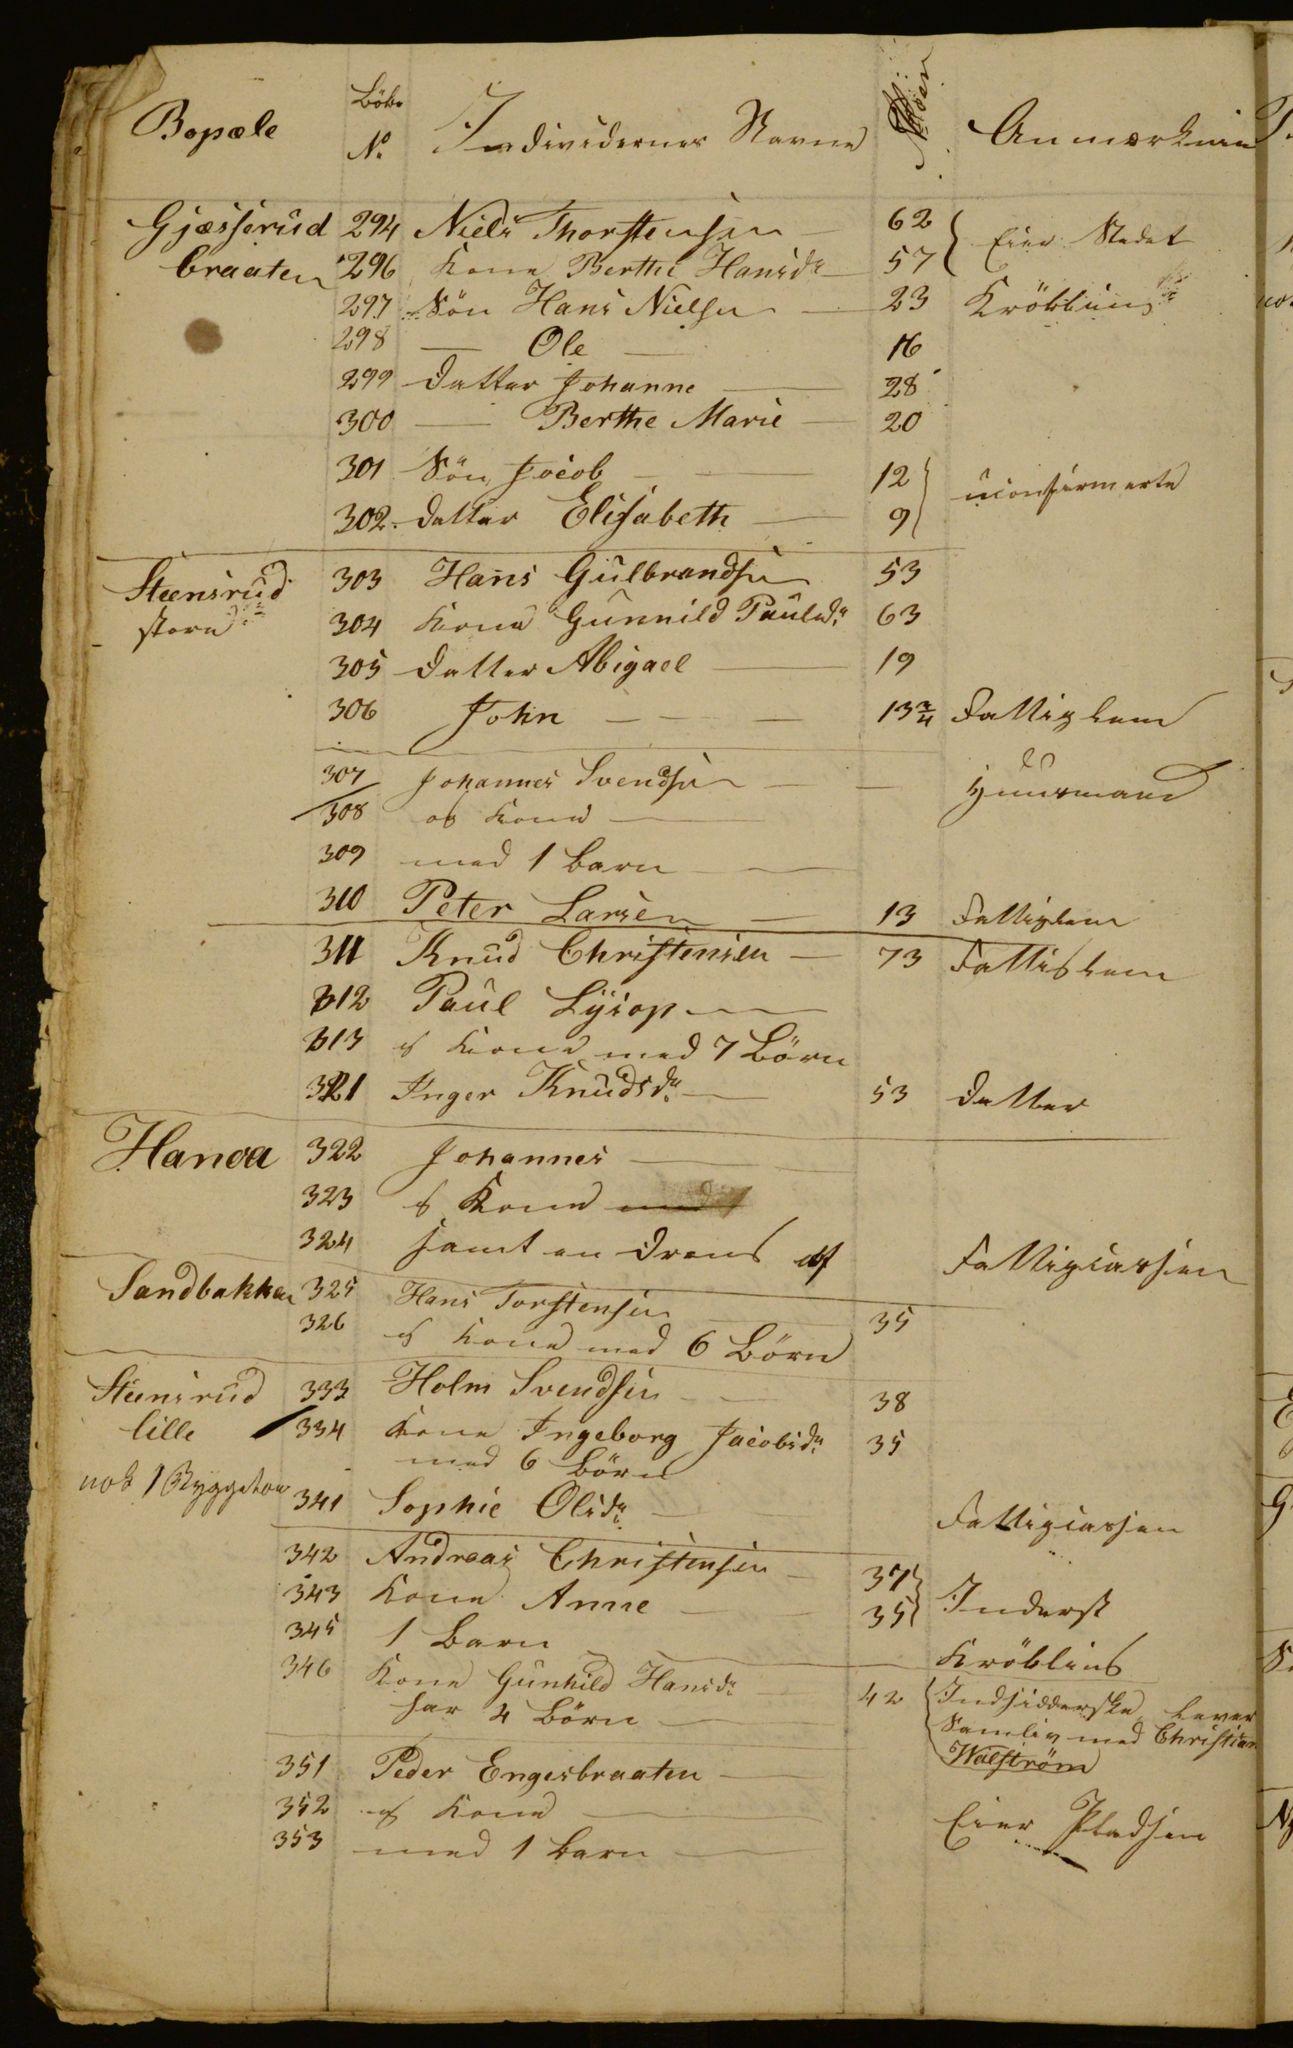 Bopæle Løbe No Individernes Navne Alder Anmærknin
Gjæsserud 294 Niels Thorstensen 62 Eier Stedet
braaten 296 Kone Berthe Hansdr 57
297 Søn Hans Nielsen 23 Krøbling
298 — Ole 16
299 Datter Johanne 28
300 — Berthe Marie 20
301 Søn Jocob 12 uconfirmerte
302. Datter Elisabeth 9
Steensrud 303 Hans Gulbrandsen 53
store 304 Kone Gunnild Paulsdr 63
305 Datter Abigael 19
306 John 13 3/4 Fattiglem
307 Johannes Svendsen Huusmand
308 og Kone
309 med 1 Barn
310 Peter Larsen 13 Fattiglem
311 Knud Christensen 73 Fattiglem
312 Paul Lysop
313 og Kone med 7 Børn
321 Inger Knudsdr 53 Datter
Hanoa 322 Johannes
323 og Kone med
324 samt en Dreng af Fattigcassen
Sandbakken 325 Hans Torstensen 35
326 og Kone med 6 Børn
Steensrud 333 Holm Svendsen 38
lille 334 Kone Ingeborg Jacobsdr 35
med 6 Børn
nok 1 341 Sophie Olsdr Fattigcassen
342 Andreas Christensen 37 Inderst
343 Kone Anne 35
345 1 Barn Krøbling
346 Kone Gunhild Hansdr 42 Indsidderske, lever
har 4 Børn Samliv med Christian
Walstrøm
351 Peder Engesbraaten
352 og Kone Eier Pladsen
353 med 1 Barn